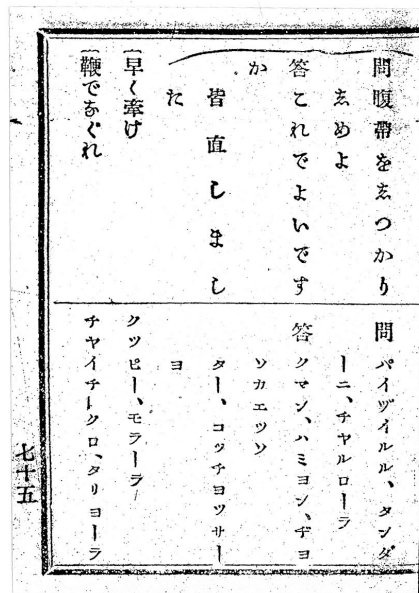 問腹帶をゑつかり
ゑめよ
答これでよいです
か
皆直しまし
た
早く牽け
鞭でなぐれ
問パイヅイルル、タンダ
ーニ、チヤルローラ
答クマン、ハミヨン、チヨ
ソカエツソ
ター、コッチヨツサー
ヨ
クツピー、モラーラ
チヤイチークロ、タリヨーラ
七十五